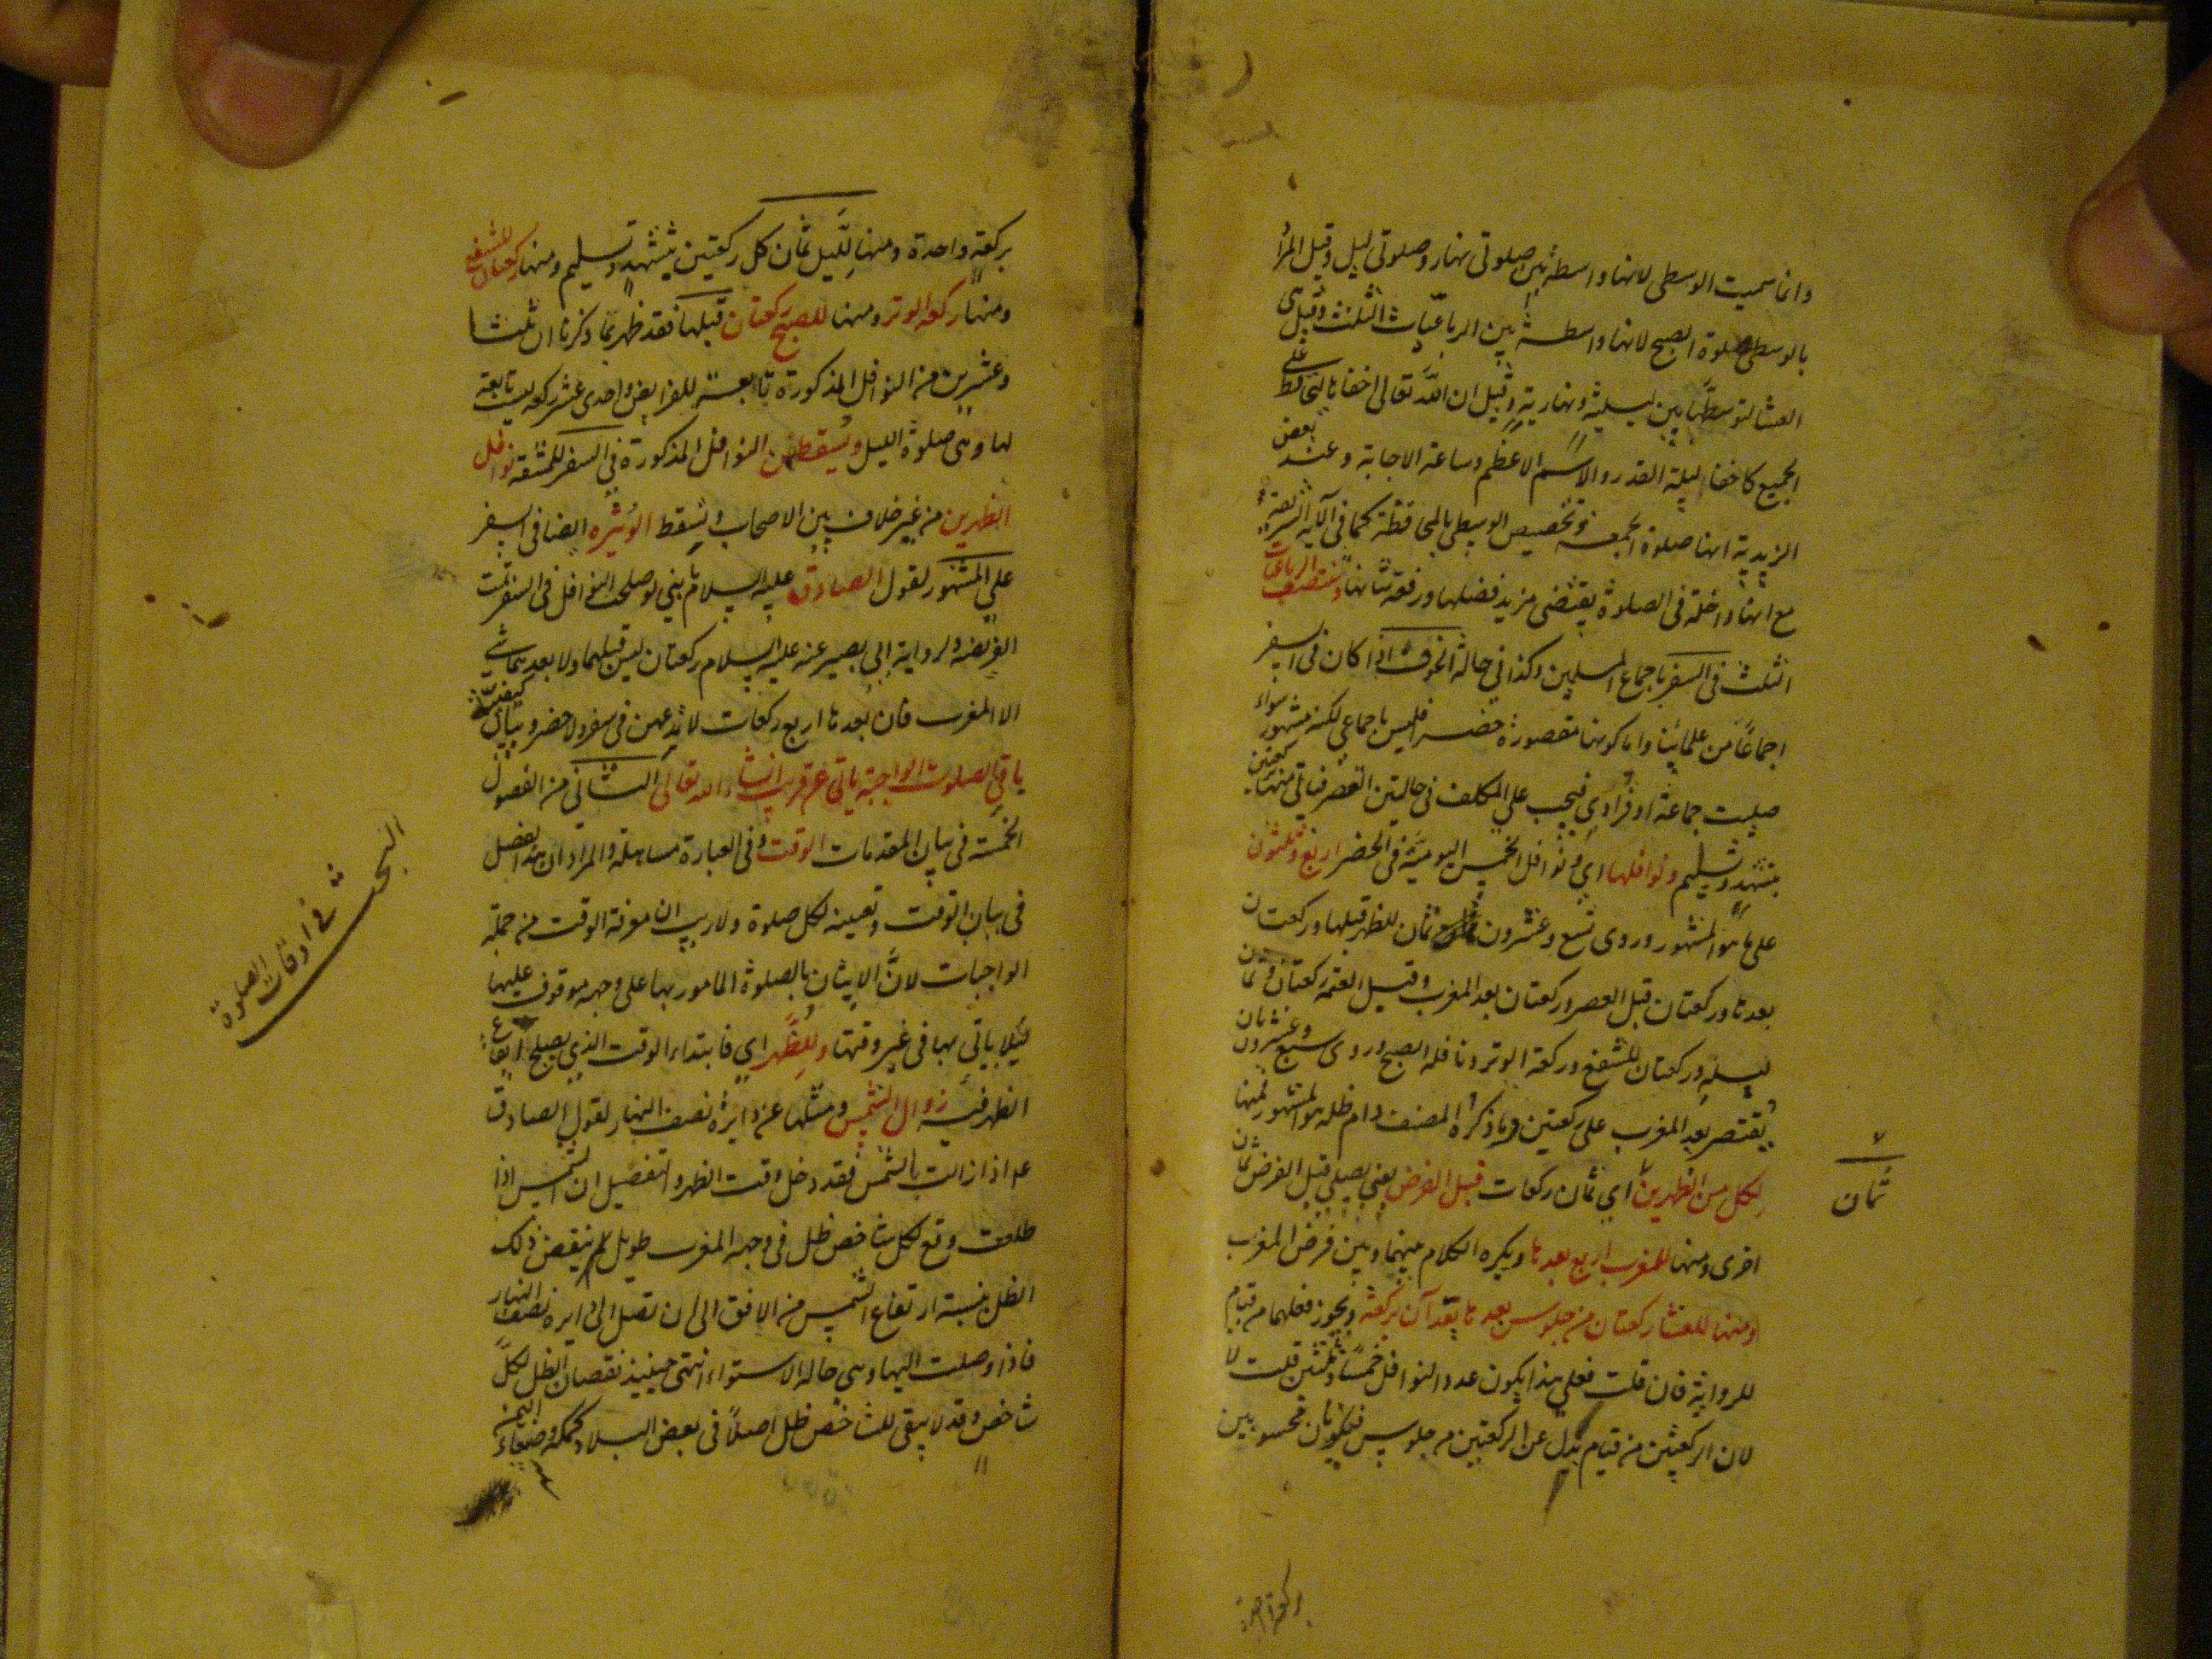 وانما سميت الوسطى لانها واسطة بين صلوتى نهار وصلوتى ليل وقيل المراد
بالوسطى صلوة الصبح لانها واسطة بين الرباعيات الثلث وقيل هى
العشا لتوسطها بين ليلية ونهارية وقيل ان الله تعالى اخفاها لتحافظ على
الجميع كاخفا ليلة القدر والاسم الاعظم وساعة الاجابة وعند بعض
الزيدية انها صلوة الجمعة وتخصيص الوسطى بالمحافظة كما فى الآية الشريفة
مع انها داخلة فى الصلوة يقتضى مزيد فضلها ورفعة شانها وتنتصف الرباعيات
الثلث فى السفر باجماع المسلمين وكذا فى حالة الخوف اذا كان فى السفر
اجماعًا من علمائنا واما كونها مقصورة حضرا فليس باجماعى لكنه مشهور سواء
صليت جماعة او فرادى فيجب على المكلف فى حالتين القصر فياتى منها ركعتين
بتشهد وتسليم ونوافلها اى ونوافل الخمس اليومية فى الحضر اربع وثلثون
على ما هو المشهور وروى تسع وعشرون ثمان للظهر قبلها وركعتان
بعدها وركعتان قبل العصر وركعتان بعد المغرب وقبل العتمة ركعتان وثمان
ليلية وركعتان للشفع وركعة الوتر ونافلة الصبح وروى سبع وعشرون بان
يقتصر بعد المغرب على ركعتين وما ذكره المصنف دام ظله هو المشهور فمنها
لكل من الظهرين اى ثمان ركعات قبل الفرض يعنى يصلى قبل الفرض ثمان
ثمان
اخرى ومنها للمغرب اربع بعدها ويكره الكلام بينهما وبين فرض المغرب
ومنها للعشا ركعتان من جلوس بعدها يعدان بركعة ويجوز فعلهما من قيام
للرواية فان قلت فعلى هذا يكون عدد النوافل خمسًا وثلثين قلت لا
لان الركعتين من قيام بدل عن الركعتين من جلوس فيكونان محسوبين
بركعة واحدة
بركعة واحدة ومنها لليل ثمان كل ركعتين بتشهد وتسليم ومنها ركعتان للشفع
ومنها ركعة الوتر ومنها للصبح ركعتان قبلها فقد ظهر بما ذكرنا ان ثلثا
وعشرين من النوافل المذكورة تابعة للفرايض واحدى عشر ركعة ليست تابعة
لها وهى صلوة الليل ويسقط من النوافل المذكورة فى السفر للمشقة نوافل
الظهرين من غير خلاف بين الاصحاب ويسقط الوتيره ايضا فى السفر
على المشهور لقول الصادق عليه السلام يا بنى لو صلحت النوافل فى السفر تمت
الفريضة ولرواية ابى بصير عنه عليه السلام ركعتان ليس قبلهما ولا بعدهما شى
الا المغرب فان بعدها اربع ركعات لا تدعهن فى سفر ولا حضر وبيان كيفية
باقى الصلوت الواجبة ياتى عن قريب انشاء الله تعالى الثانى من الفصول
الخمسة فى بيان المقدمات الوقت وفى العبارة مساهلة والمراد ان هذا الفصل
فى بيان الوقت وتعيينه لكل صلوة ولا ريب ان معرفة الوقت من جملة
الواجبات لان الاتيان بالصلوة المامور بها على وجهه موقوف عليها
لئلا ياتى بها فى غير وقتها وللظهر اى فابتداء الوقت الذى يصلح ايقاع
الظهر فيه زوال الشمس وميلها عن دايرة نصف النهار لقول الصادق
عم اذا زالت الشمس فقد دخل وقت الظهر والتفصيل ان الشمس اذا
طلعت وقع لكل شاخص ظل فى وجهه المغرب طويل ثم ينقص ذلك
الظل بنسبة ارتفاع الشمس من الافق الى ان تصل الى دايره نصف النهار
فاذا وصلت اليها وهى حالة الاستواء انتهى حينئذ نقصان الظل لكل
شاخص وقد لا يبقى للشاخص ظل اصلاً فى بعض البلاد كمكة وصنعاء اليمن
البحث فى اوقات الصلوة